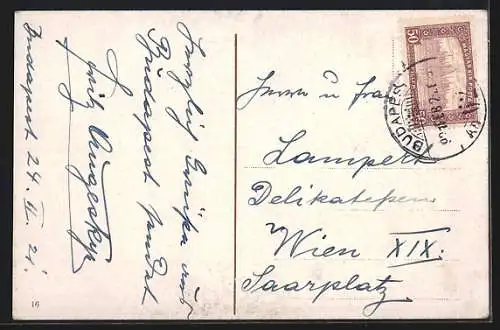 Budapest 24. II. 21.
Herzlich Grüße aus
Budapest sendet
Fritz
Herrn u Frau
Lampert
Delikatessen
Wien XIX.
Saarplatz
50
MAGYAR KIR. POSTA
BUDAPEST
921
16